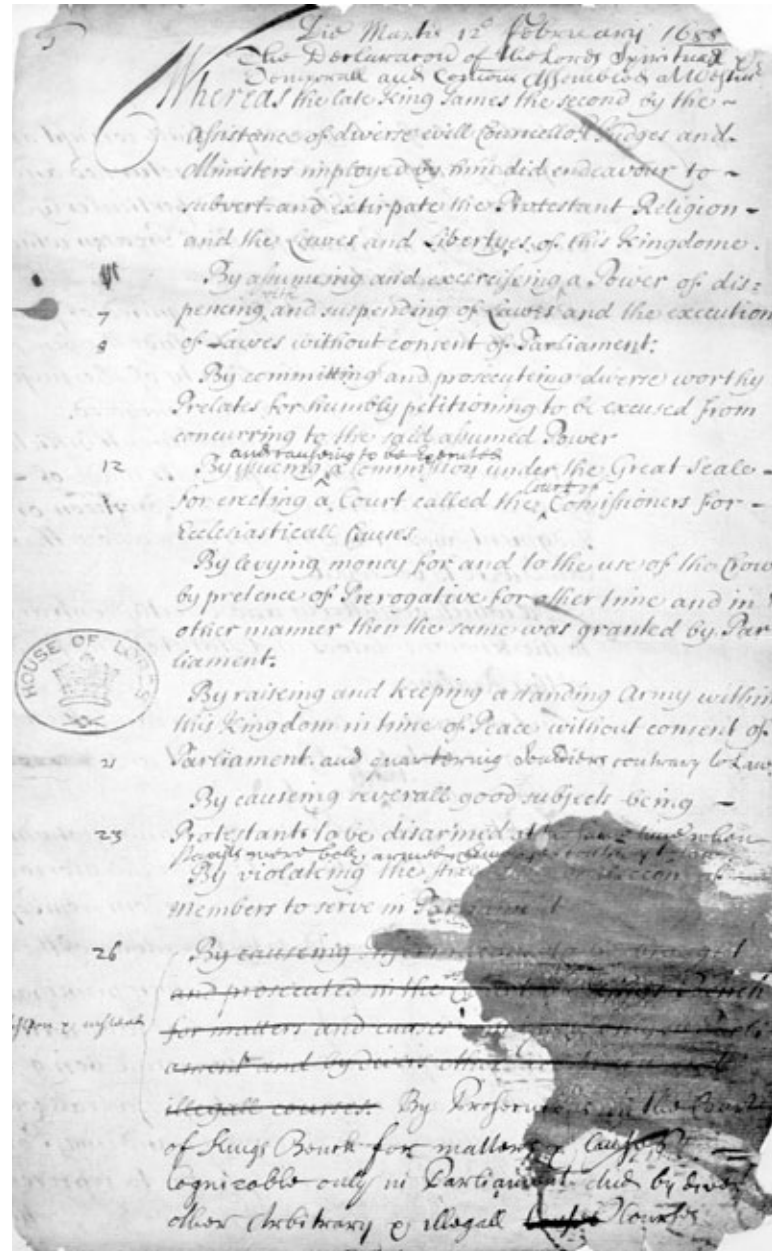 Die Martis 12º February 1688
The Declaration of the Lords Spirituall &
Temporall and Comons Assembled at Westm
Whereas the late King James the second by the
Assistance of diverse evill Councellors Judges and
Ministers imployed by him did endeavour to
subvert and extirpate the Protestant Religion
and the Lawes and Libertyes of this Kingdome.
By assumeing and exerciseing a Power of dis=
7 penceing with and suspending of Lawes and the execution
8 of Lawes without consent of Parliament.
By committing and prosecuteing diverse worthy
Prelates for humbly petitioning to be excused from
concurring to the said assumed Power
and causing to be Executed
12 By issueing a Commission under the Great Seale
Court of
for erecting a Court called the Comissioners for
Ecclesiasticall Causes
By levying money for and to the use of the Crow
by pretence of Prerogative for other time and in
other manner then the same was granted by Par
liament.
HOUSE OF LORDS
By raiseing and keeping a standing Army within
this Kingdom in time of Peace without consent of
21 Parliament and quartering Souldiers contrary to Law
By causeing severall good subjects being
23 Protestants to be disarmed at the same time when
Papists were both armed
By violateing the
members to serve in Parliament
26 By causeing
and prosecuted in the
for matters and causes
ament and by divers other
illegall courses. By Prosecutions in the Court
of Kings Bench for matters & Causes
Cognizable only in Parliament and by divers
other Arbitrary & illegall Courses